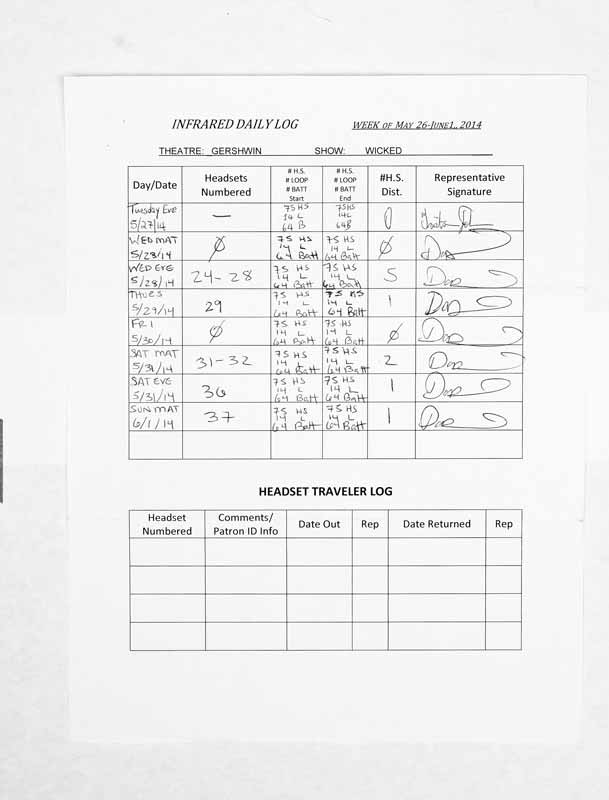 INFRARED DAILY LOG WEEK OF MAY 26-JUNE1., 2014
THEATRE: GERSHWIN SHOW: WICKED
Day/Date Headsets Numbered # H.S. # LOOP # BATT Start # H.S. # LOOP # BATT End #H.S. Dist. Representative Signature
Tuesday Eve 5/27/14 — 75 HS 14 L 64 B 75HS 14L 64B 0
WED MAT 5/28/14 Ø 75 HS 14 L 64 Batt 75 HS 14 L 64 Batt Ø
WED EVE 5/28/14 24-28 75 HS 14 L 64 Batt 75 HS 14 L 64 Batt 5
THURS 5/29/14 29 75 HS 14 L 64 Batt 75 HS 14 L 64 Batt 1
FRI 5/30/14 Ø 75 HS 14 L 64 Batt 75 HS 14 L 64 Batt Ø
SAT MAT 5/31/14 31-32 75 HS 14 L 64 Batt 75 HS 14 L 64 Batt 2
SAT EVE 5/31/14 36 75 HS 14 L 64 Batt 75 HS 14 L 64 Batt 1
SUN MAT 6/1/14 37 75 HS 14 L 64 Batt 75 HS 14 L 64 Batt 1
HEADSET TRAVELER LOG
Headset Numbered Comments/ Patron ID Info Date Out Rep Date Returned Rep